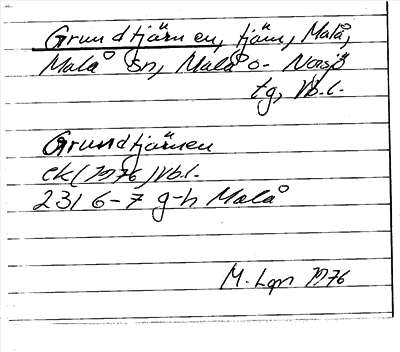 Grundtjärnen, tjärn, Malå,
Malå sn, Malå o- Norsjö
tg, Vb.l.
Grundtjärnen
ek (1976) Vb.l.
23I 6-7 g-h Malå
M. Lgn 1976